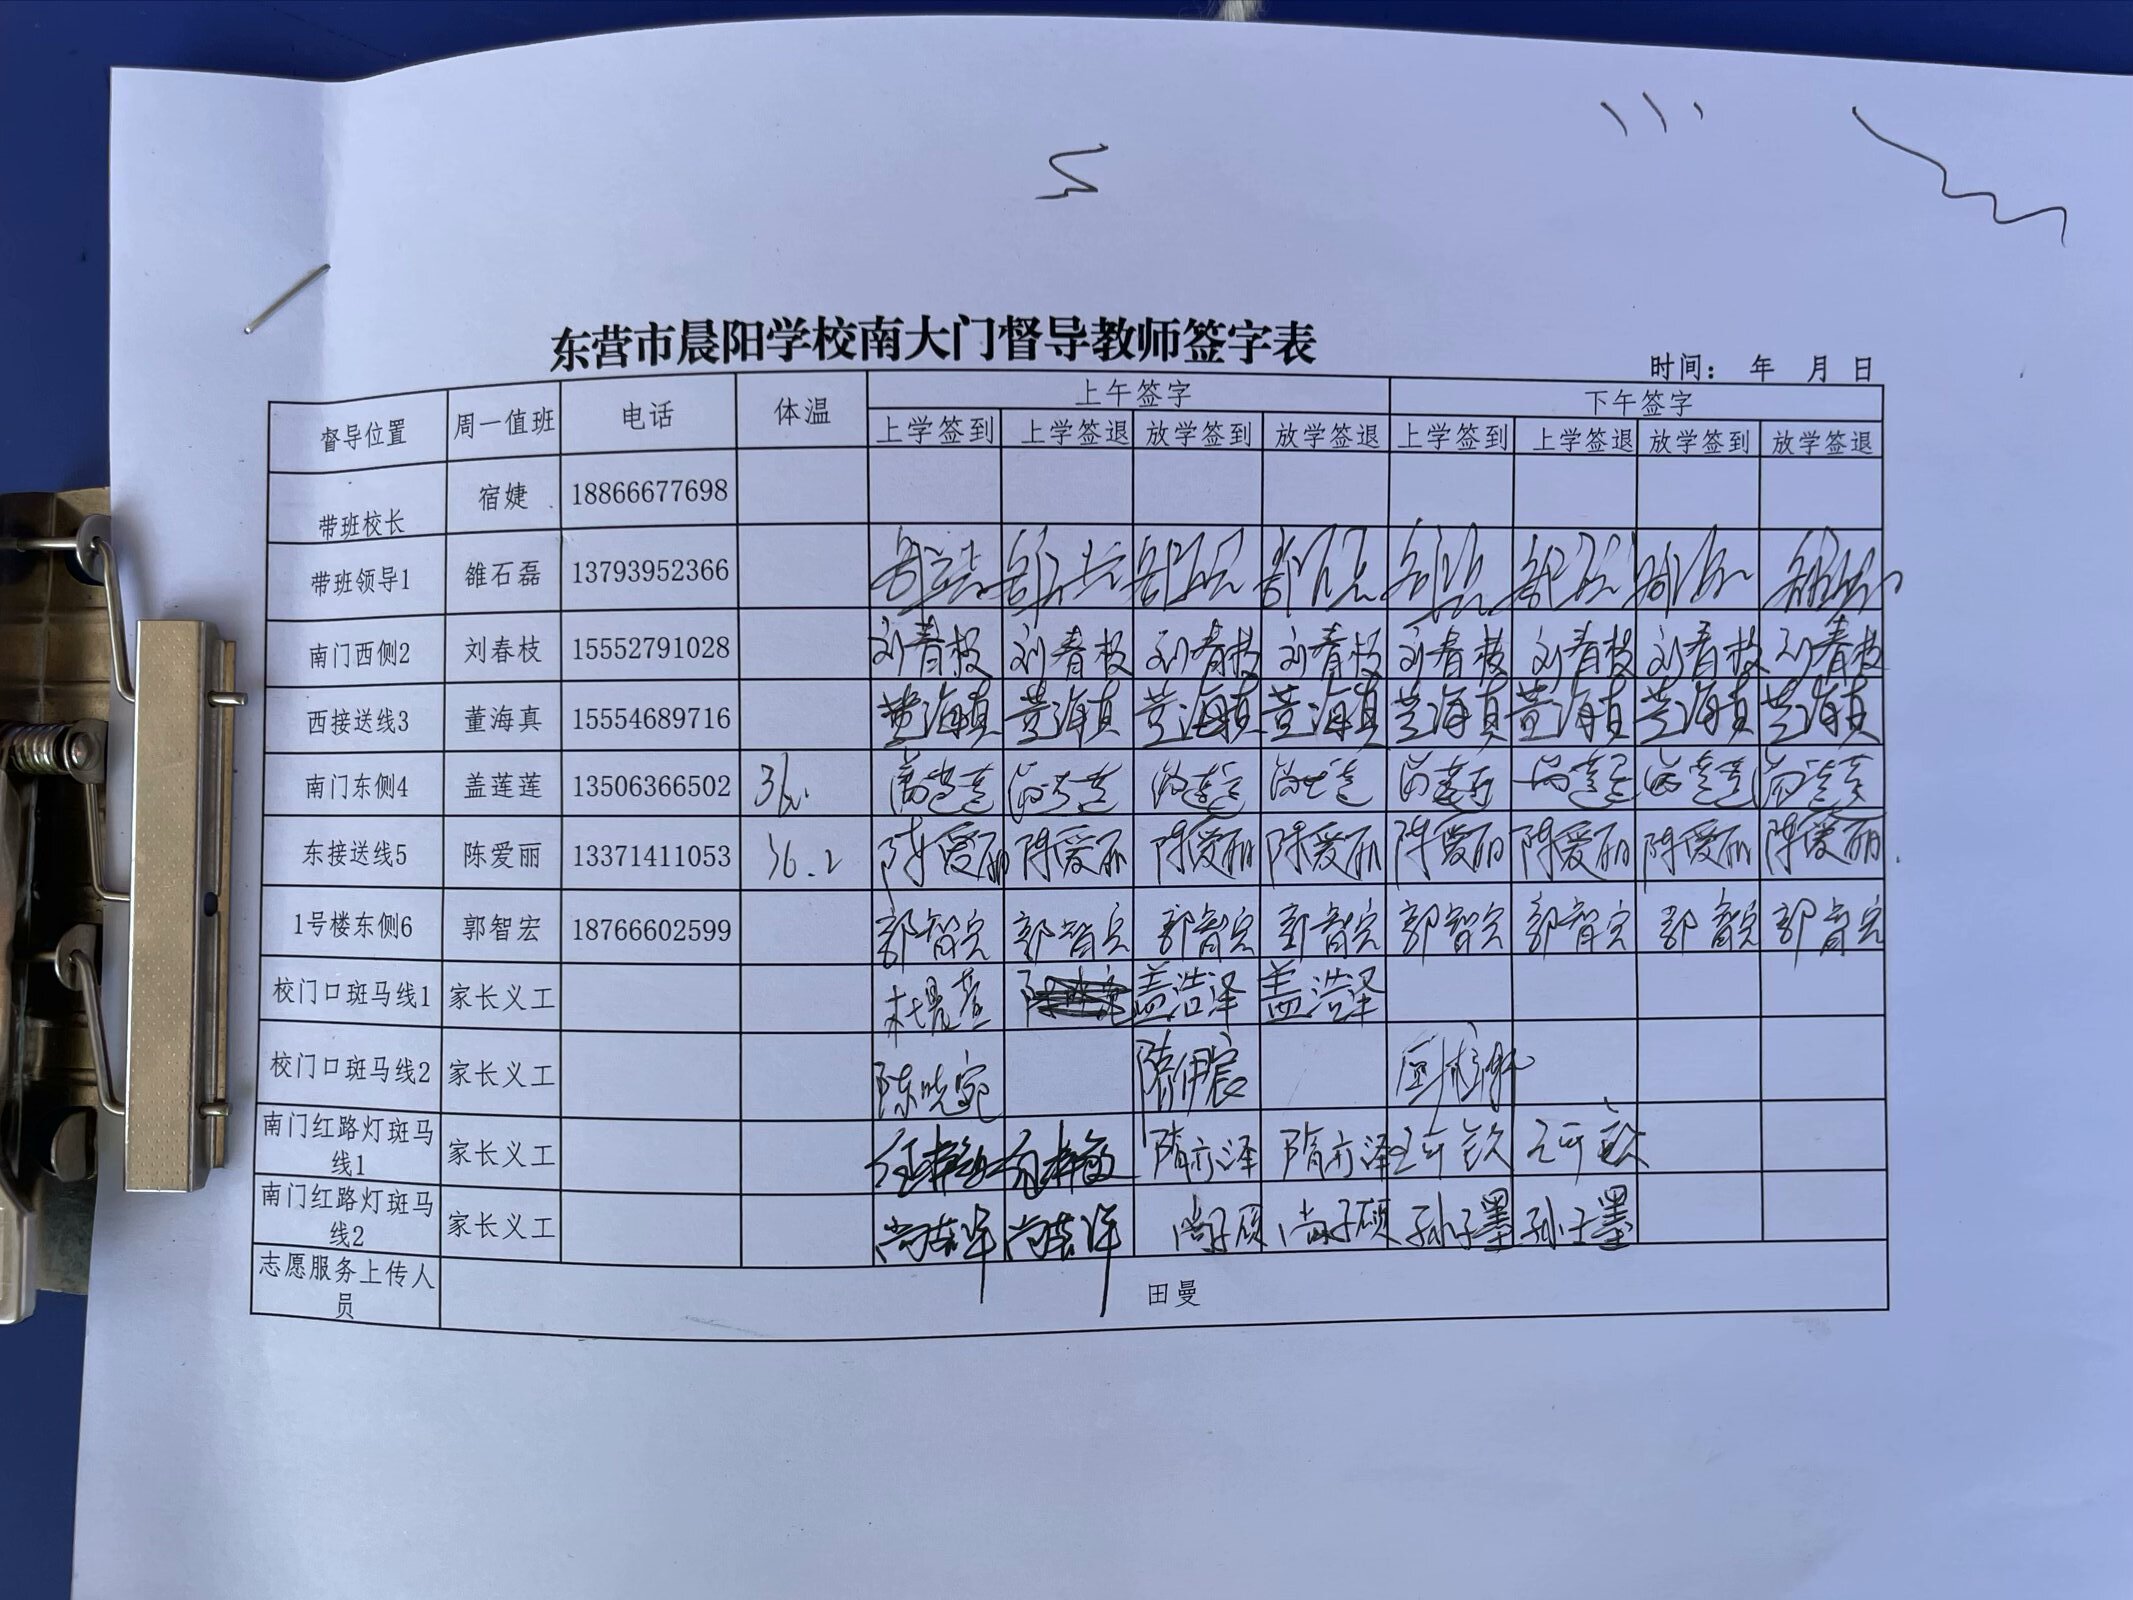 东营市晨阳学校南大门督导教师签字表
时间： 年 月 日
督导位置 周一值班 电话 体温 上午签字 下午签字
上学签到 上学签退 放学签到 放学签退 上学签到 上学签退 放学签到 放学签退
带班校长 宿婕 18866677698
带班领导1 雒石磊 13793952366
南门西侧2 刘春枝 15552791028 刘春枝 刘春枝 刘春枝 刘春枝 刘春枝 刘春枝 刘春枝 刘春枝
西接送线3 董海真 15554689716 董海真 董海真 董海真 董海真 董海真 董海真 董海真 董海真
南门东侧4 盖莲莲 13506366502
东接送线5 陈爱丽 13371411053 36.2 陈爱丽 陈爱丽 陈爱丽 陈爱丽 陈爱丽 陈爱丽 陈爱丽 陈爱丽
1号楼东侧6 郭智宏 18766602599 郭智宏 郭智宏 郭智宏 郭智宏 郭智宏 郭智宏 郭智宏 郭智宏
校门口斑马线1 家长义工 盖浩泽 盖浩泽
校门口斑马线2 家长义工 陈晓宛 隋伊宸
南门红路灯斑马线1 家长义工 隋亦泽 隋亦泽
南门红路灯斑马线2 家长义工 尚子硕 尚子硕 孙子墨 孙子墨
志愿服务上传人员 田曼